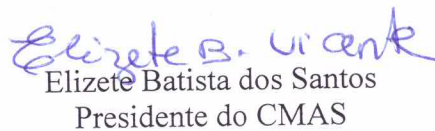 Elizete B. Vicente
Elizete Batista dos Santos
Presidente do CMAS